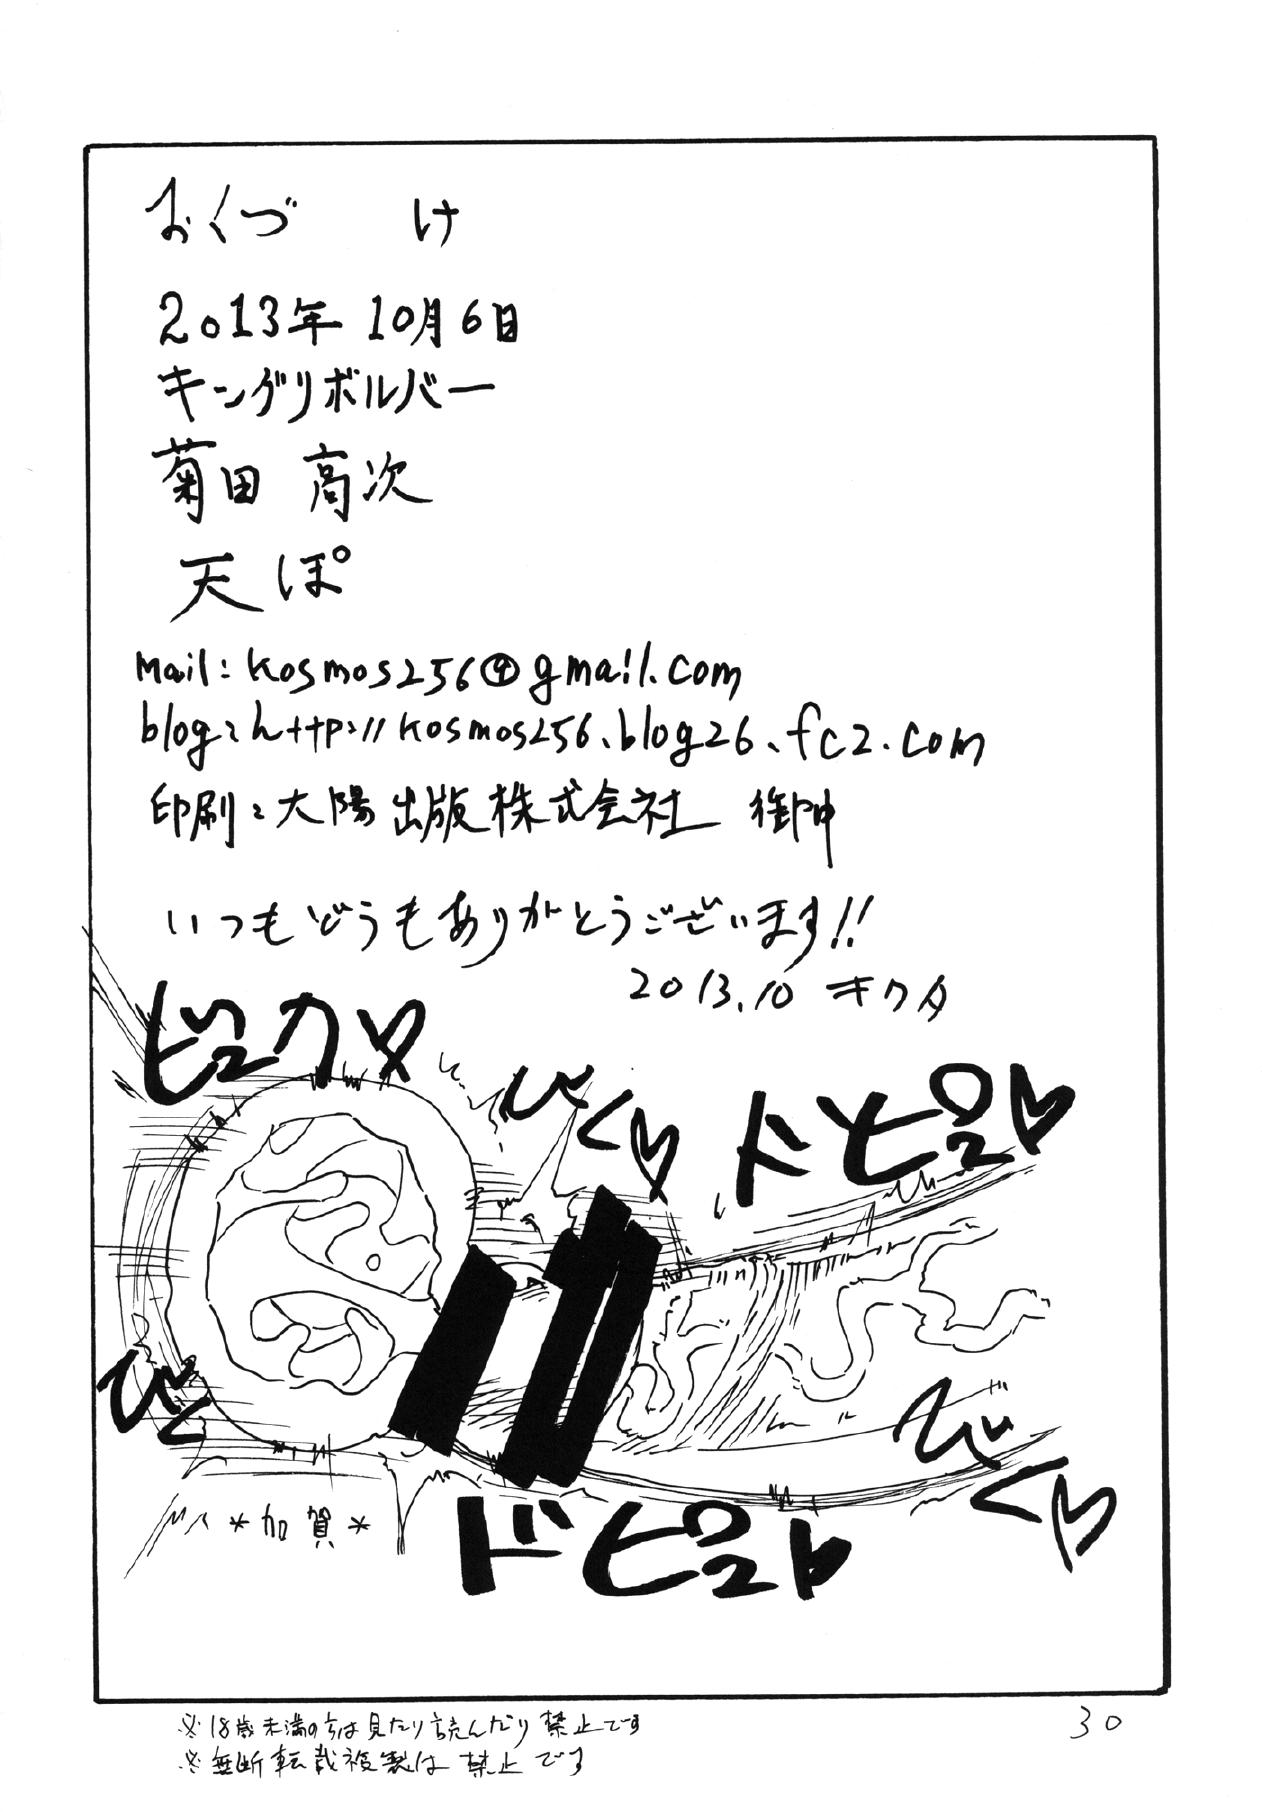 おくづけ
2013年 10月6日
キングリボルバー
菊田 高次
天ぽ
mail: kosmos256@gmail.com
blog: http://kosmos256.blog26.fc2.com
印刷: 大陽出版株式会社 御中
いつもどうもありがとうございます!!
2013.10 キクタ
ビュク♥
びく♥
ドピュ♥
びく
びく♥
*加賀*
ドピュ♥
※18歳未満の方は見たり読んだり禁止です
30
※無断転載複製は禁止です